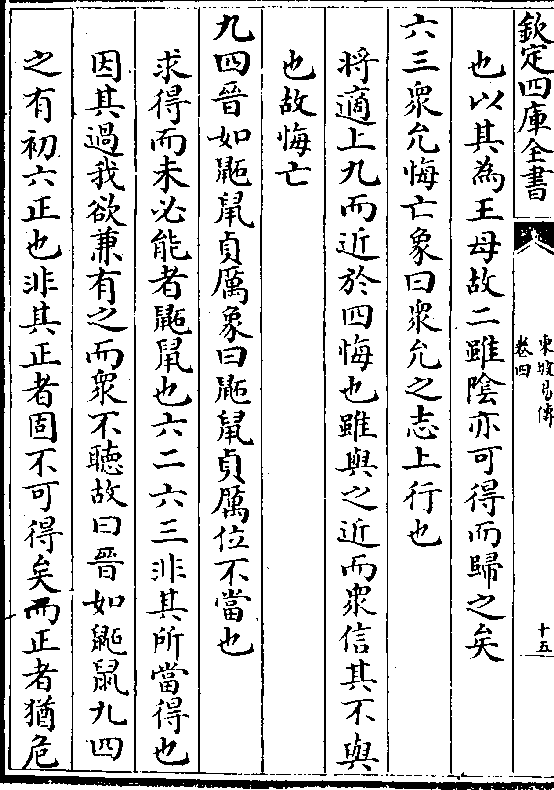 欽定四庫全書
東坡易傳
卷四
十五
也以其為王母故二雖陰亦可得而歸之矣
六三衆允悔亡象曰衆允之志上行也
將適上九而近於四悔也雖與之近而衆信其不與
也故悔亡
九四晉如鼫鼠貞厲象曰鼫鼠貞厲位不當也
求得而未必能者鼫鼠也六二六三非其所當得也
因其過我欲兼有之而衆不聽故曰晉如鼫鼠九四
之有初六正也非其正者固不可得矣而正者猶危